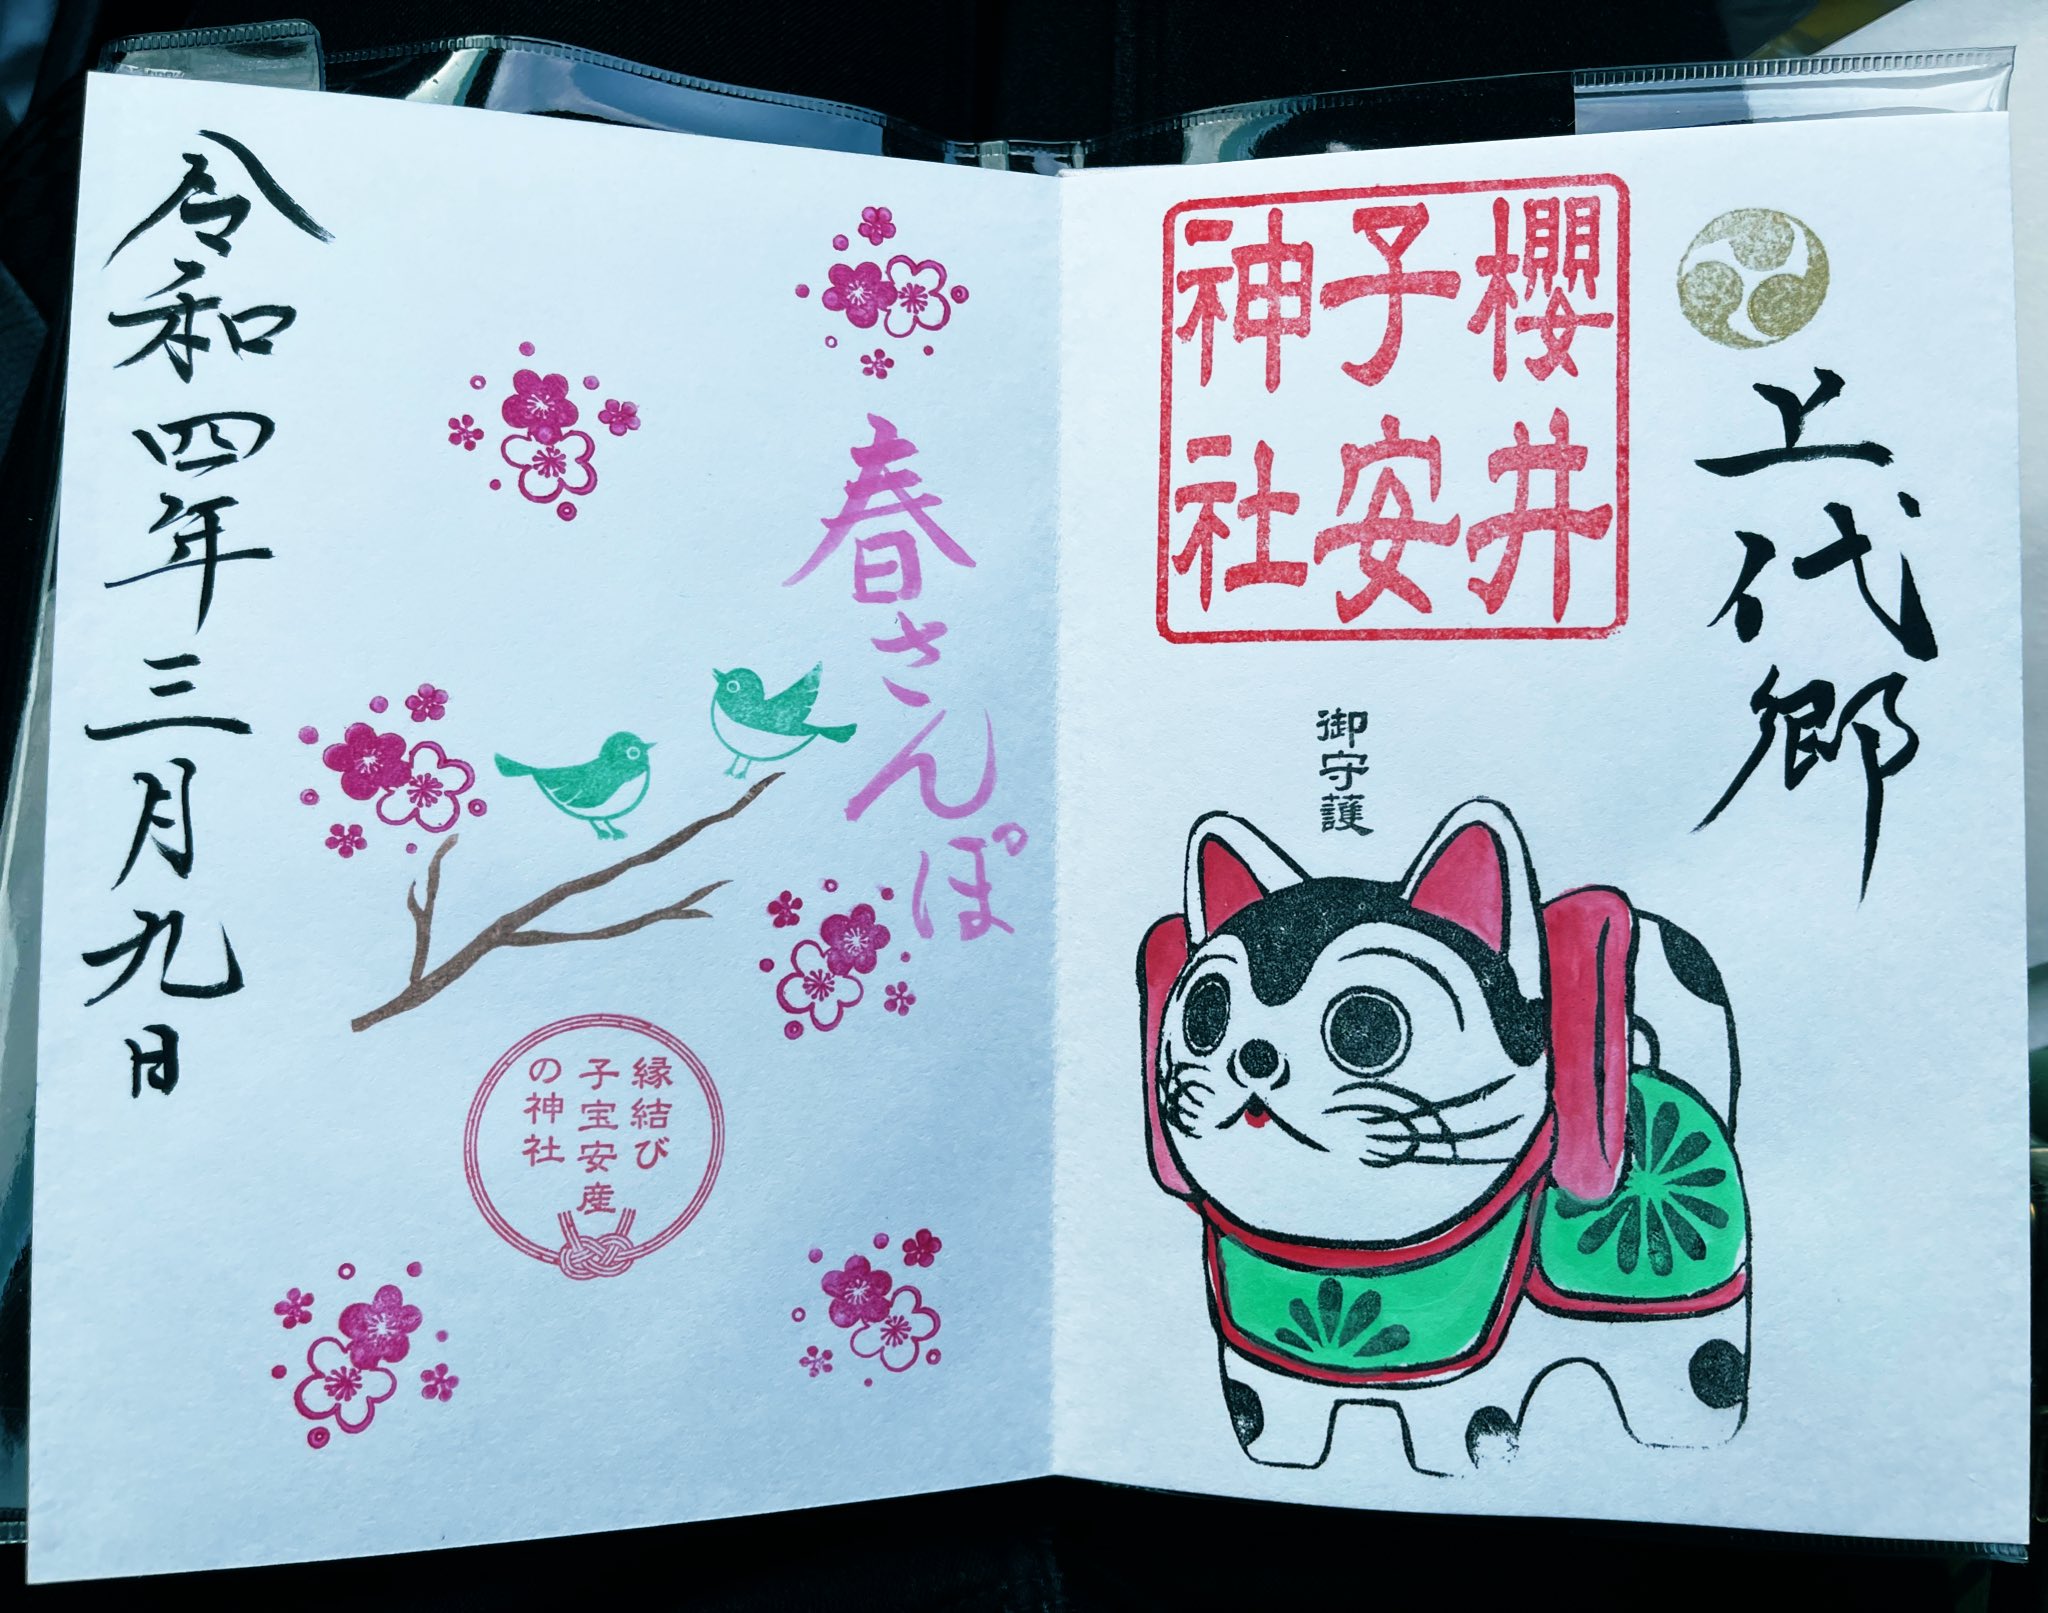 上代郷
櫻井
子安
神社
御守護
春さんぽ
縁結び
子宝安産
の神社
令和四年三月九日